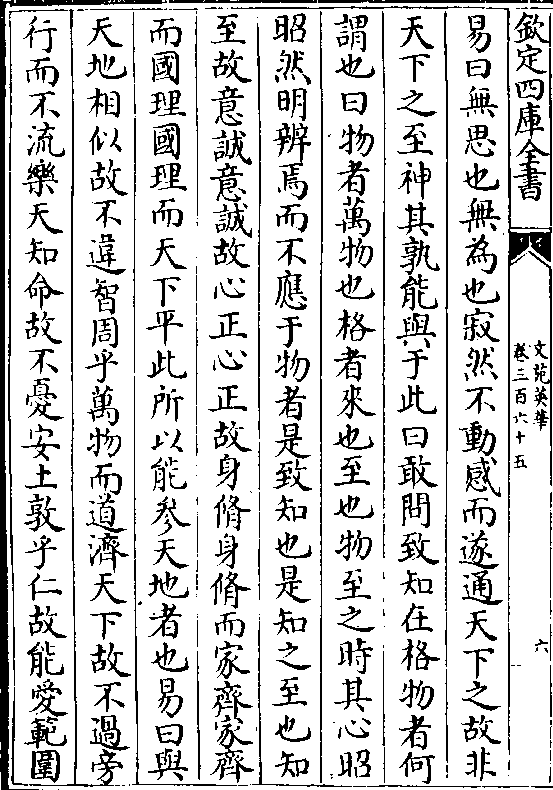 欽定四庫全書
文苑英華
卷三百六十五
六
易曰無思也無為也寂然不動感而遂通天下之故非
天下之至神其孰能與于此曰敢問致知在格物者何
謂也曰物者萬物也格者來也至也物至之時其心昭
昭然明辨焉而不應于物者是致知也是知之至也知
至故意誠意誠故心正心正故身脩身脩而家齊家齊
而國理國理而天下平此所以能參天地者也易曰與
天地相似故不違智周乎萬物而道濟天下故不過旁
行而不流樂天知命故不憂安土敦乎仁故能愛範圍